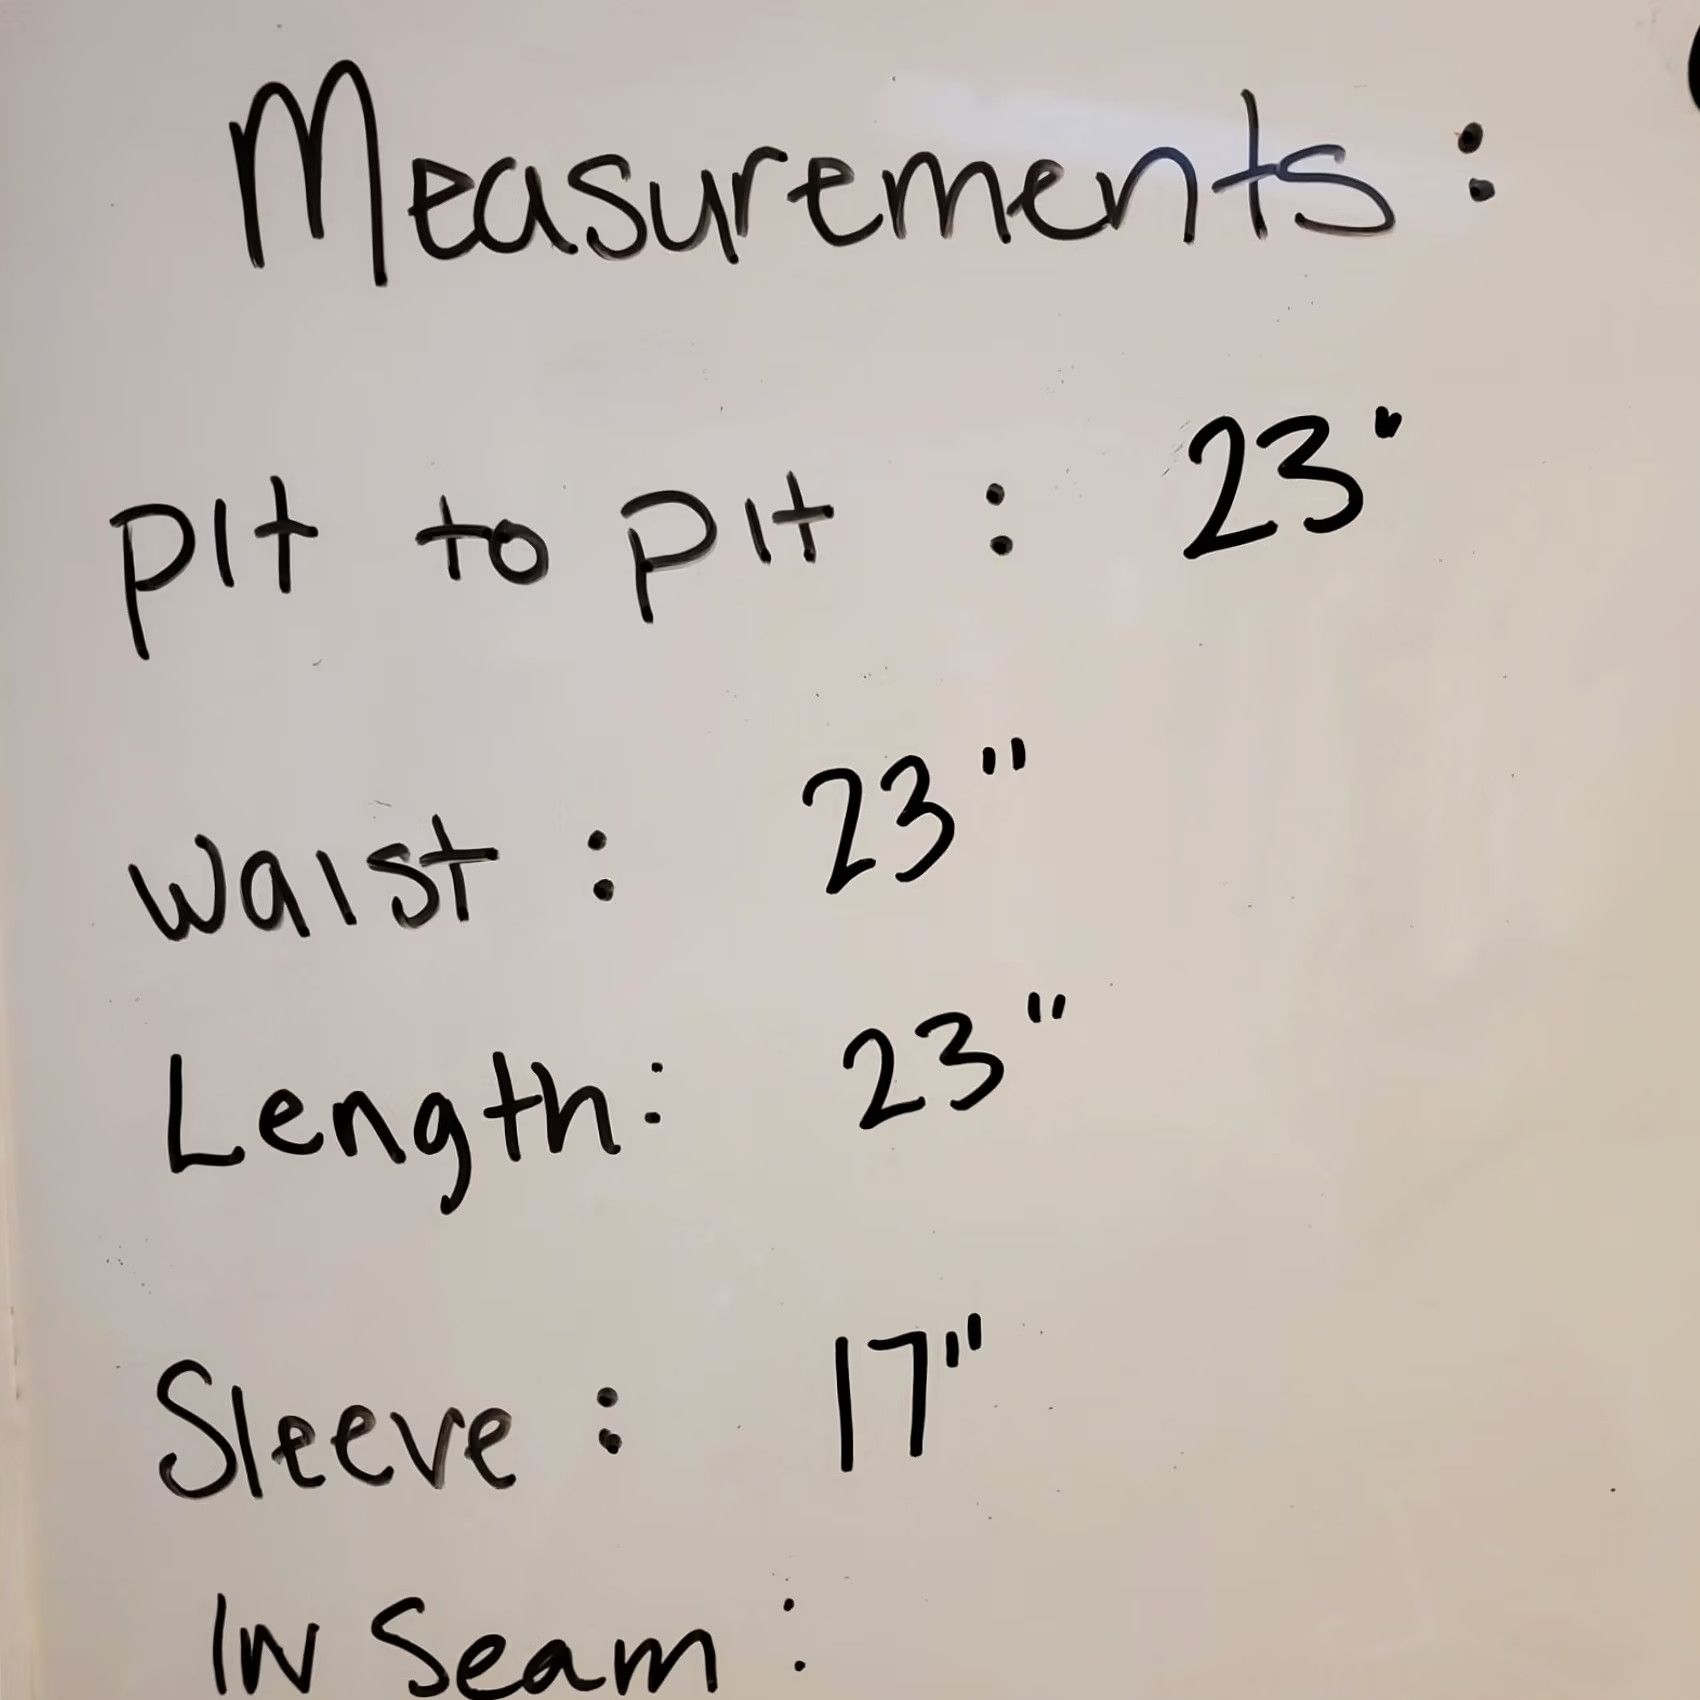 Measurements:
Pit to Pit : 23"
Waist : 23"
Length: 23"
Sleeve : 17"
In Seam :